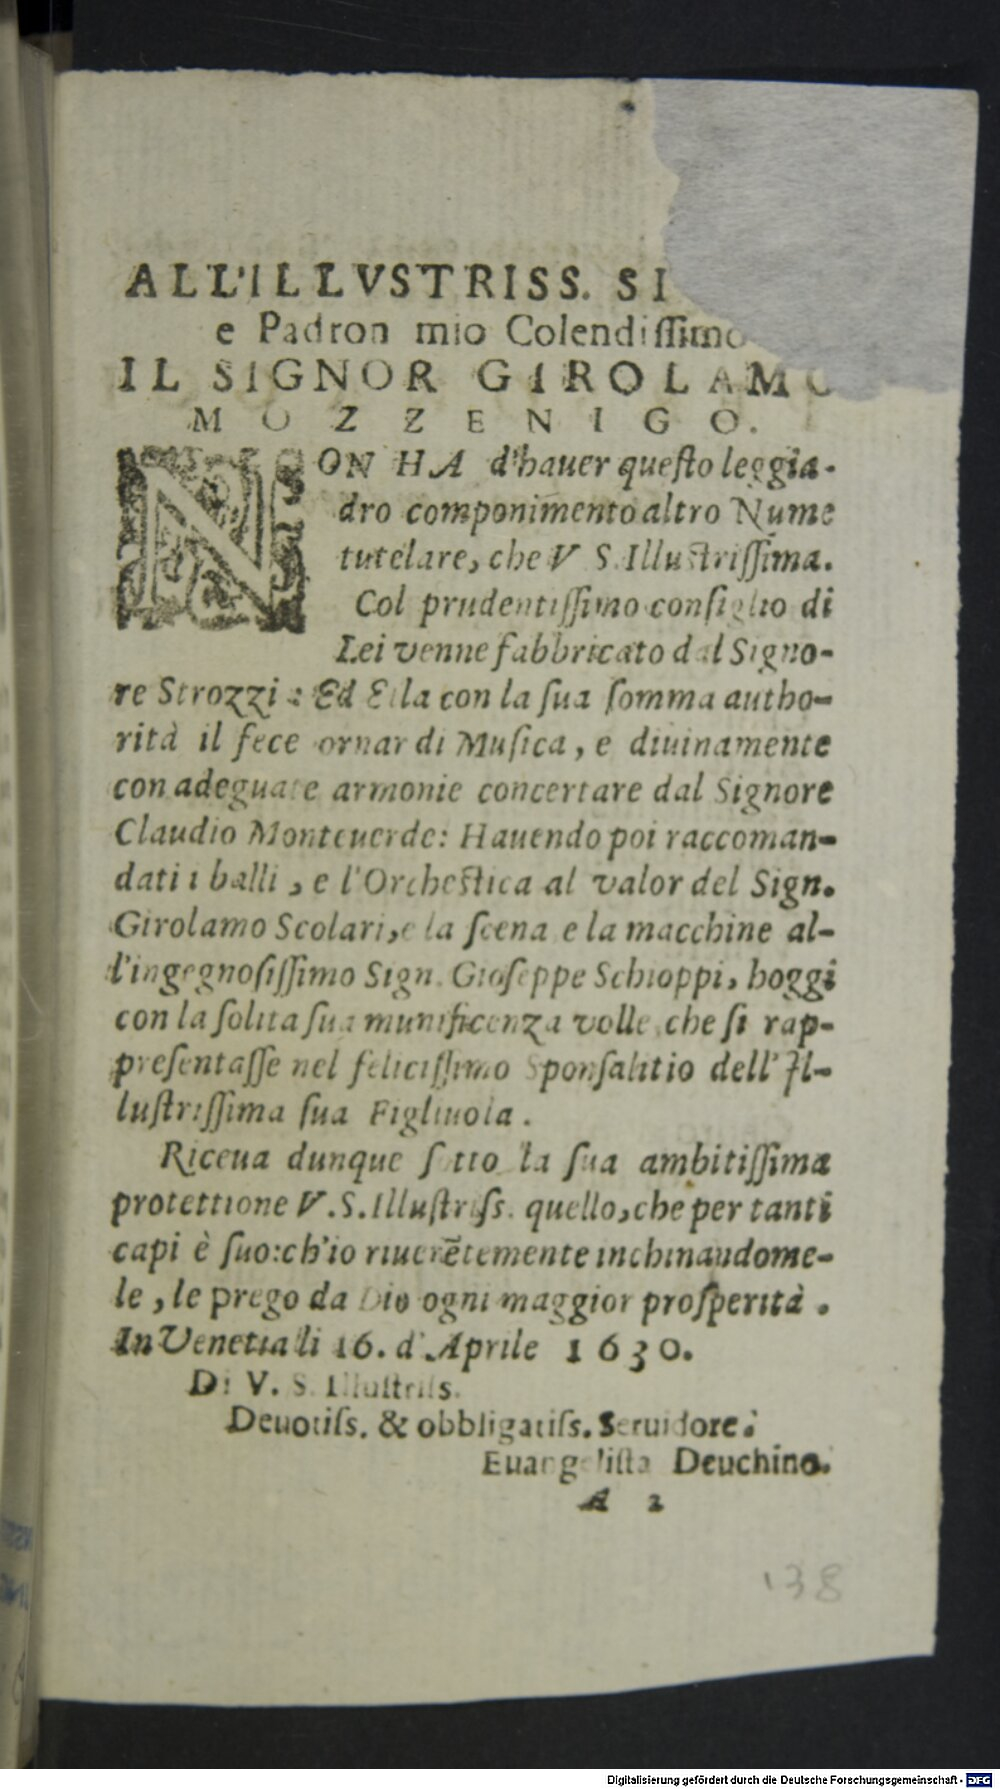 ALL'ILLVSTRISS. SI
e Padron mio Colendissimo
IL SIGNOR GIROLAMO
MOZZENIGO.
NON HA d'hauer questo leggia-
dro componimento altro Nume
tutelare, che V S. Illustrissima.
Col prudentissimo consiglio di
Lei venne fabbricato dal Signo-
re Strozzi: Ed Ella con la sua somma autho-
rità il fece ornar di Musica, e diuinamente
con adeguate armonie concertare dal Signore
Claudio Monteuerde: Hauendo poi raccoman-
dati i balli, e l'Orchestica al valor del Sign.
Girolamo Scolari, e la scena e la macchine al-
l'ingegnosissimo Sign. Gioseppe Schioppi, hoggi
con la solita sua munificenza volle che si rap-
presentasse nel felicissimo Sponsalitio dell'Il-
lustrissima sua Figliuola.
Riceua dunque sotto la sua ambitissima
protettione V.S.Illustriss. quello, che per tanti
capi è suo: ch'io riuerētemente inchinandome-
le, le prego da Dio ogni maggior prosperità.
In Venetia li 16. d'Aprile 1630.
Di V. S. Illustriss.
Deuotiss. & obbligatiss. Seruidore.
Euangelista Deuchino.
A 2
138
Digitalisierung gefördert durch die Deutsche Forschungsgemeinschaft - DFG